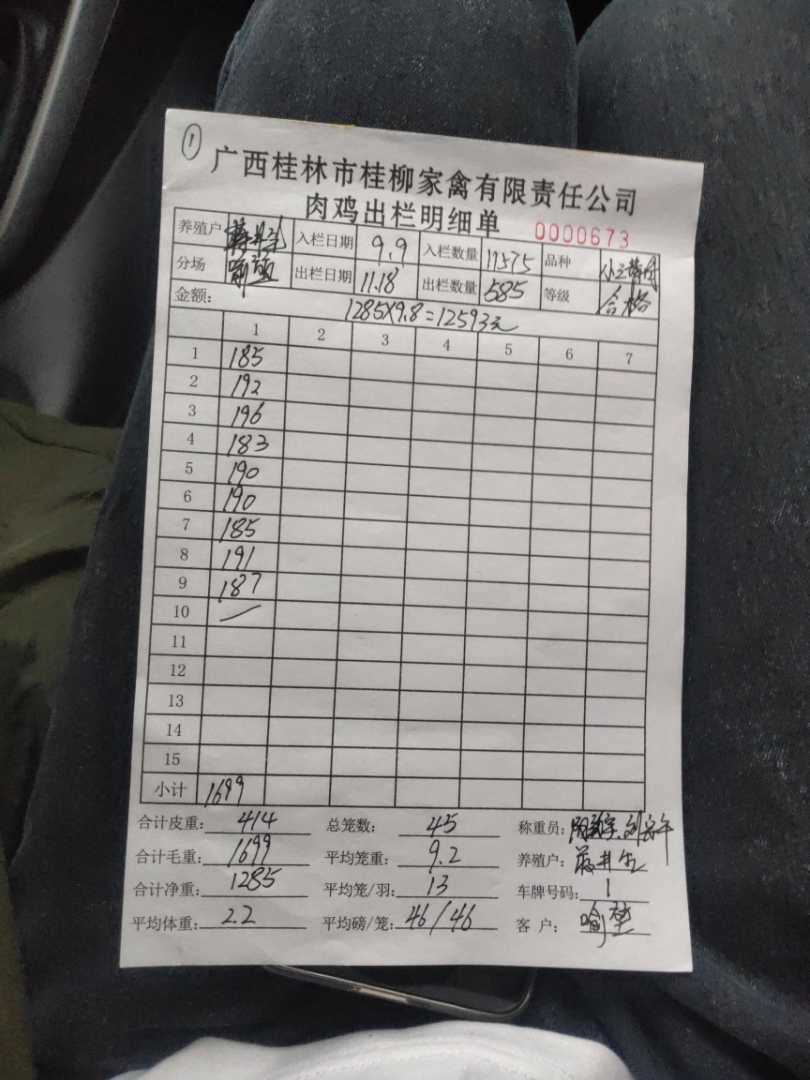 ①
广西桂林市桂柳家禽有限责任公司
肉鸡出栏明细单 0000673
养殖户 蒋井生 入栏日期 9.9 入栏数量 11575 品种
分场 喻堃 出栏日期 11.18 出栏数量 585 等级 合格
金额: 1285×9.8=12593元
1 2 3 4 5 6 7
1 185
2 192
3 196
4 183
5 190
6 190
7 185
8 191
9 187
10
11
12
13
14
15
小计 1699
合计皮重: 414 总笼数: 45 称重员:
合计毛重: 1699 平均笼重: 9.2 养殖户: 蒋井生
合计净重: 1285 平均笼/羽: 13 车牌号码: 1
平均体重: 2.2 平均磅/笼: 46/46 客户: 喻堃